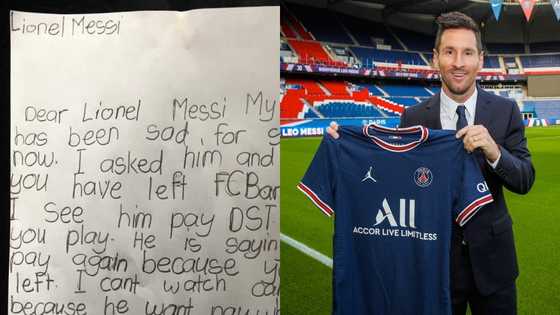 Lionel Messi
Dear Lionel Messi My
has been sad, for
now. I asked him and
you have left FCBar
I see him pay DST
you play. He is sayin
pay again because y
left. I cant watch ca
because he want pay
LEO MESSI
PARIS
ALL
ACCOR LIVE LIMITLESS